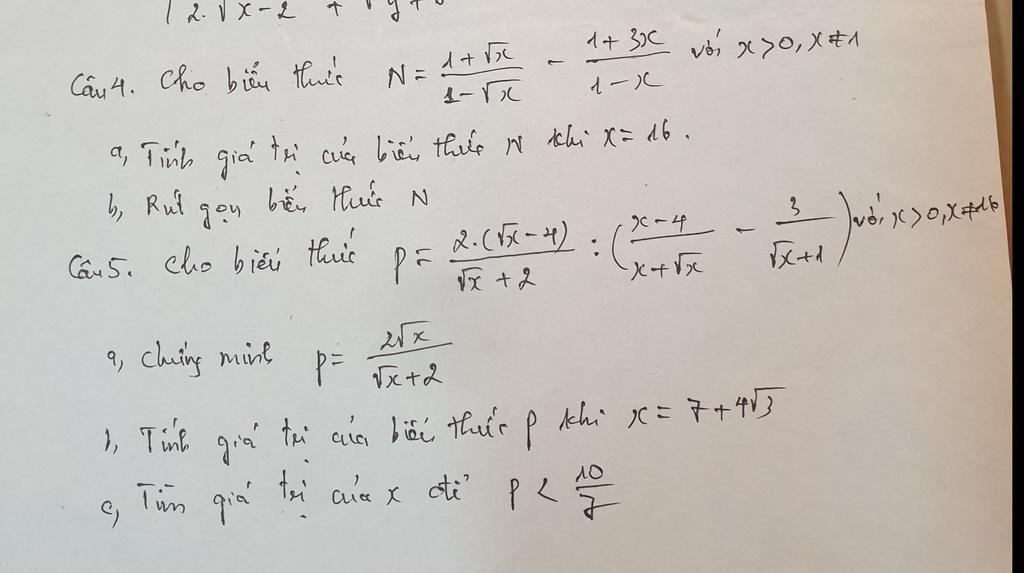 2.√x-2 + √y+
Câu 4. Cho biểu thức N = (1+√x)/(1-√x) - (1+3x)/(1-x) với x>0, x≠1
a, Tính giá trị của biểu thức N khi x = 16.
b, Rút gọn biểu thức N
Câu 5. Cho biểu thức P = (2.(√x-4))/(√x+2) : ((x-4)/(x+√x) - 3/(√x+1)) với x>0, x≠16
a, Chứng minh P = (2√x)/(√x+2)
b, Tính giá trị của biểu thức P khi x = 7+4√3
c, Tìm giá trị của x để P < 10/7